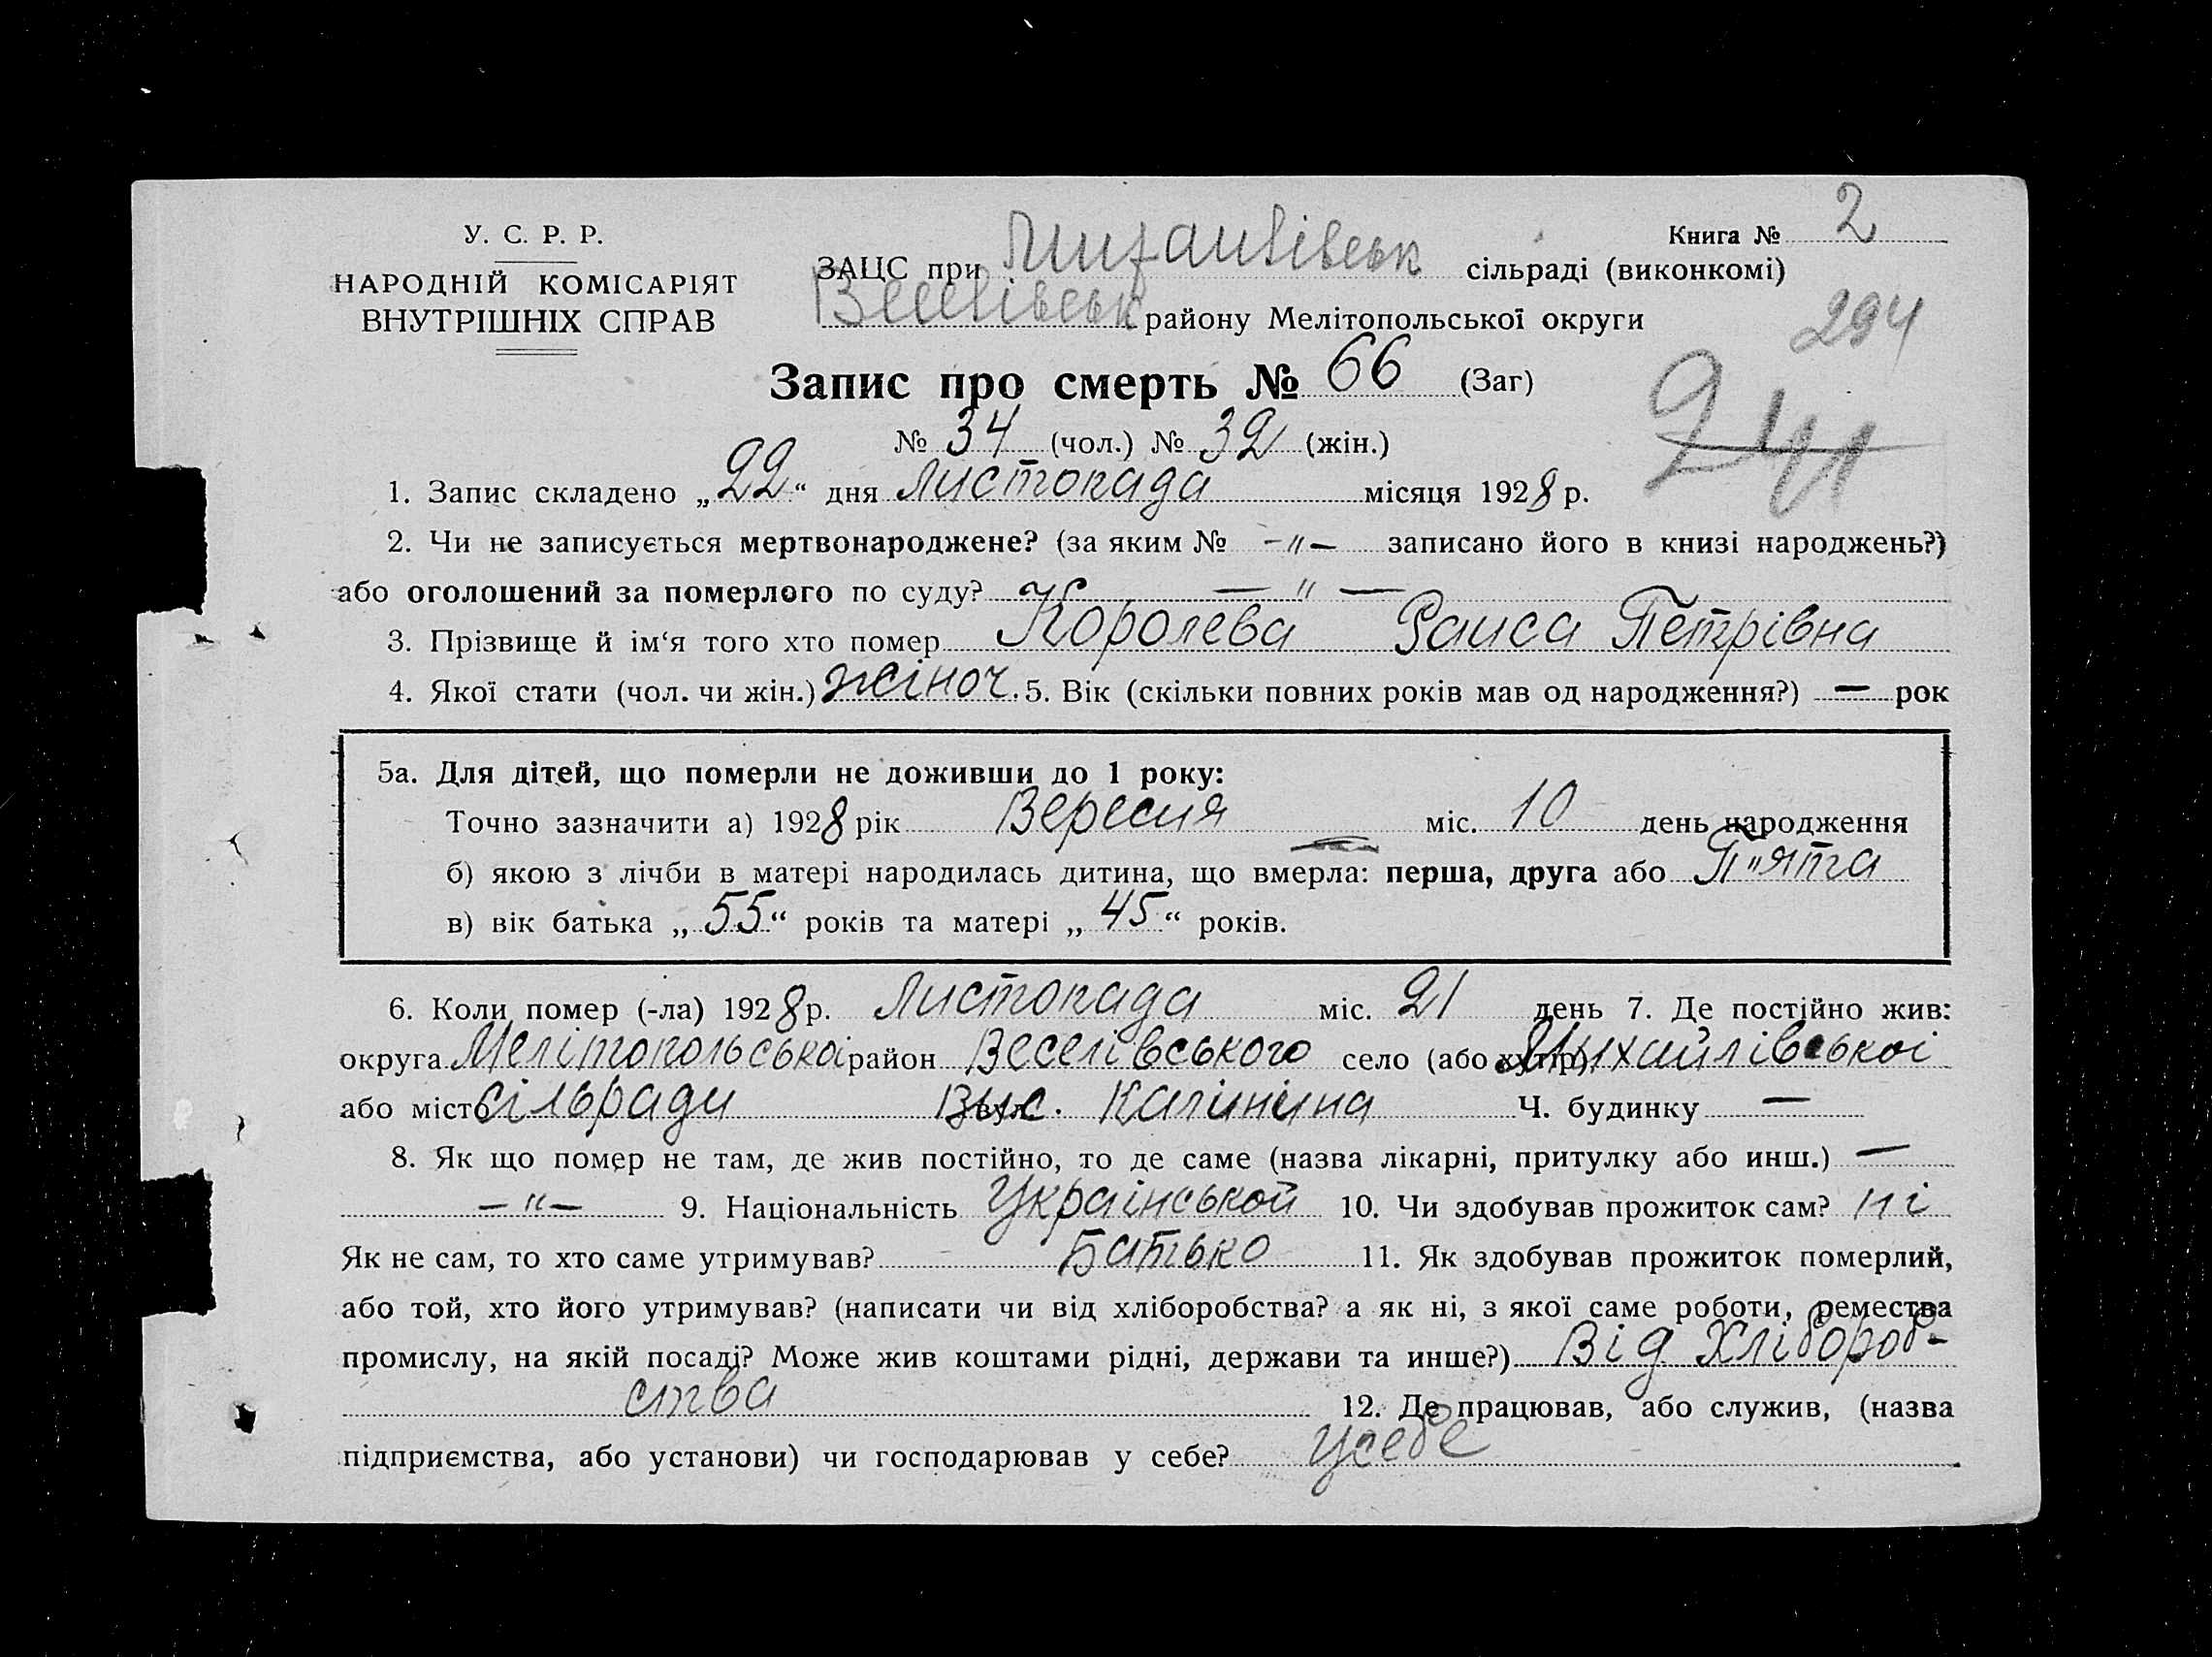 У. С. Р. Р.
НАРОДНІЙ КОМІСАРІЯТ
ВНУТРІШНІХ СПРАВ
Книга № 2
ЗАЦС при Михайлівськ сільраді (виконкомі)
Веселівськ району Мелітопольської округи
294
241
Запис про смерть № 66 (Заг)
№ 34 (чол.) № 32 (жін.)
1. Запис складено „22“ дня листопада місяця 1928 р.
2. Чи не записується мертвонароджене? (за яким № -"- записано його в книзі народжень?)
або оголошений за померлого по суду? — " —
3. Прізвище й ім‘я того хто помер Королева Раиса Петрівна
4. Якої стати (чол. чи жін.) жіноч. 5. Вік (скільки повних років мав од народження?) — рок
5а. Для дітей, що померли не доживши до 1 року:
Точно зазначити а) 1928 рік Вересня міс. 10 день народження
б) якою з лічби в матері народилась дитина, що вмерла: перша, друга або П"ята
в) вік батька „55“ років та матері „45“ років.
6. Коли помер (-ла) 1928 р. листопада міс. 21 день 7. Де постійно жив:
округа Мелітопольськоі район Веселівського село (або хутір) Михайлівськоі
або місто сільради вул. Вис. Калініна Ч. будинку —
8. Як що помер не там, де жив постійно, то де саме (назва лікарні, притулку або инш.) —
— " — 9. Національність Украінськой 10. Чи здобував прожиток сам? ні
Як не сам, то хто саме утримував? Батько 11. Як здобував прожиток померлий,
або той, хто його утримував? (написати чи від хліборобства? а як ні, з якої саме роботи, ремества
промислу, на якій посаді? Може жив коштами рідні, держави та инше?) Від Хлібороб-
ства 12. Де працював, або служив, (назва
підприємства, або установи) чи господарював у себе? усебе